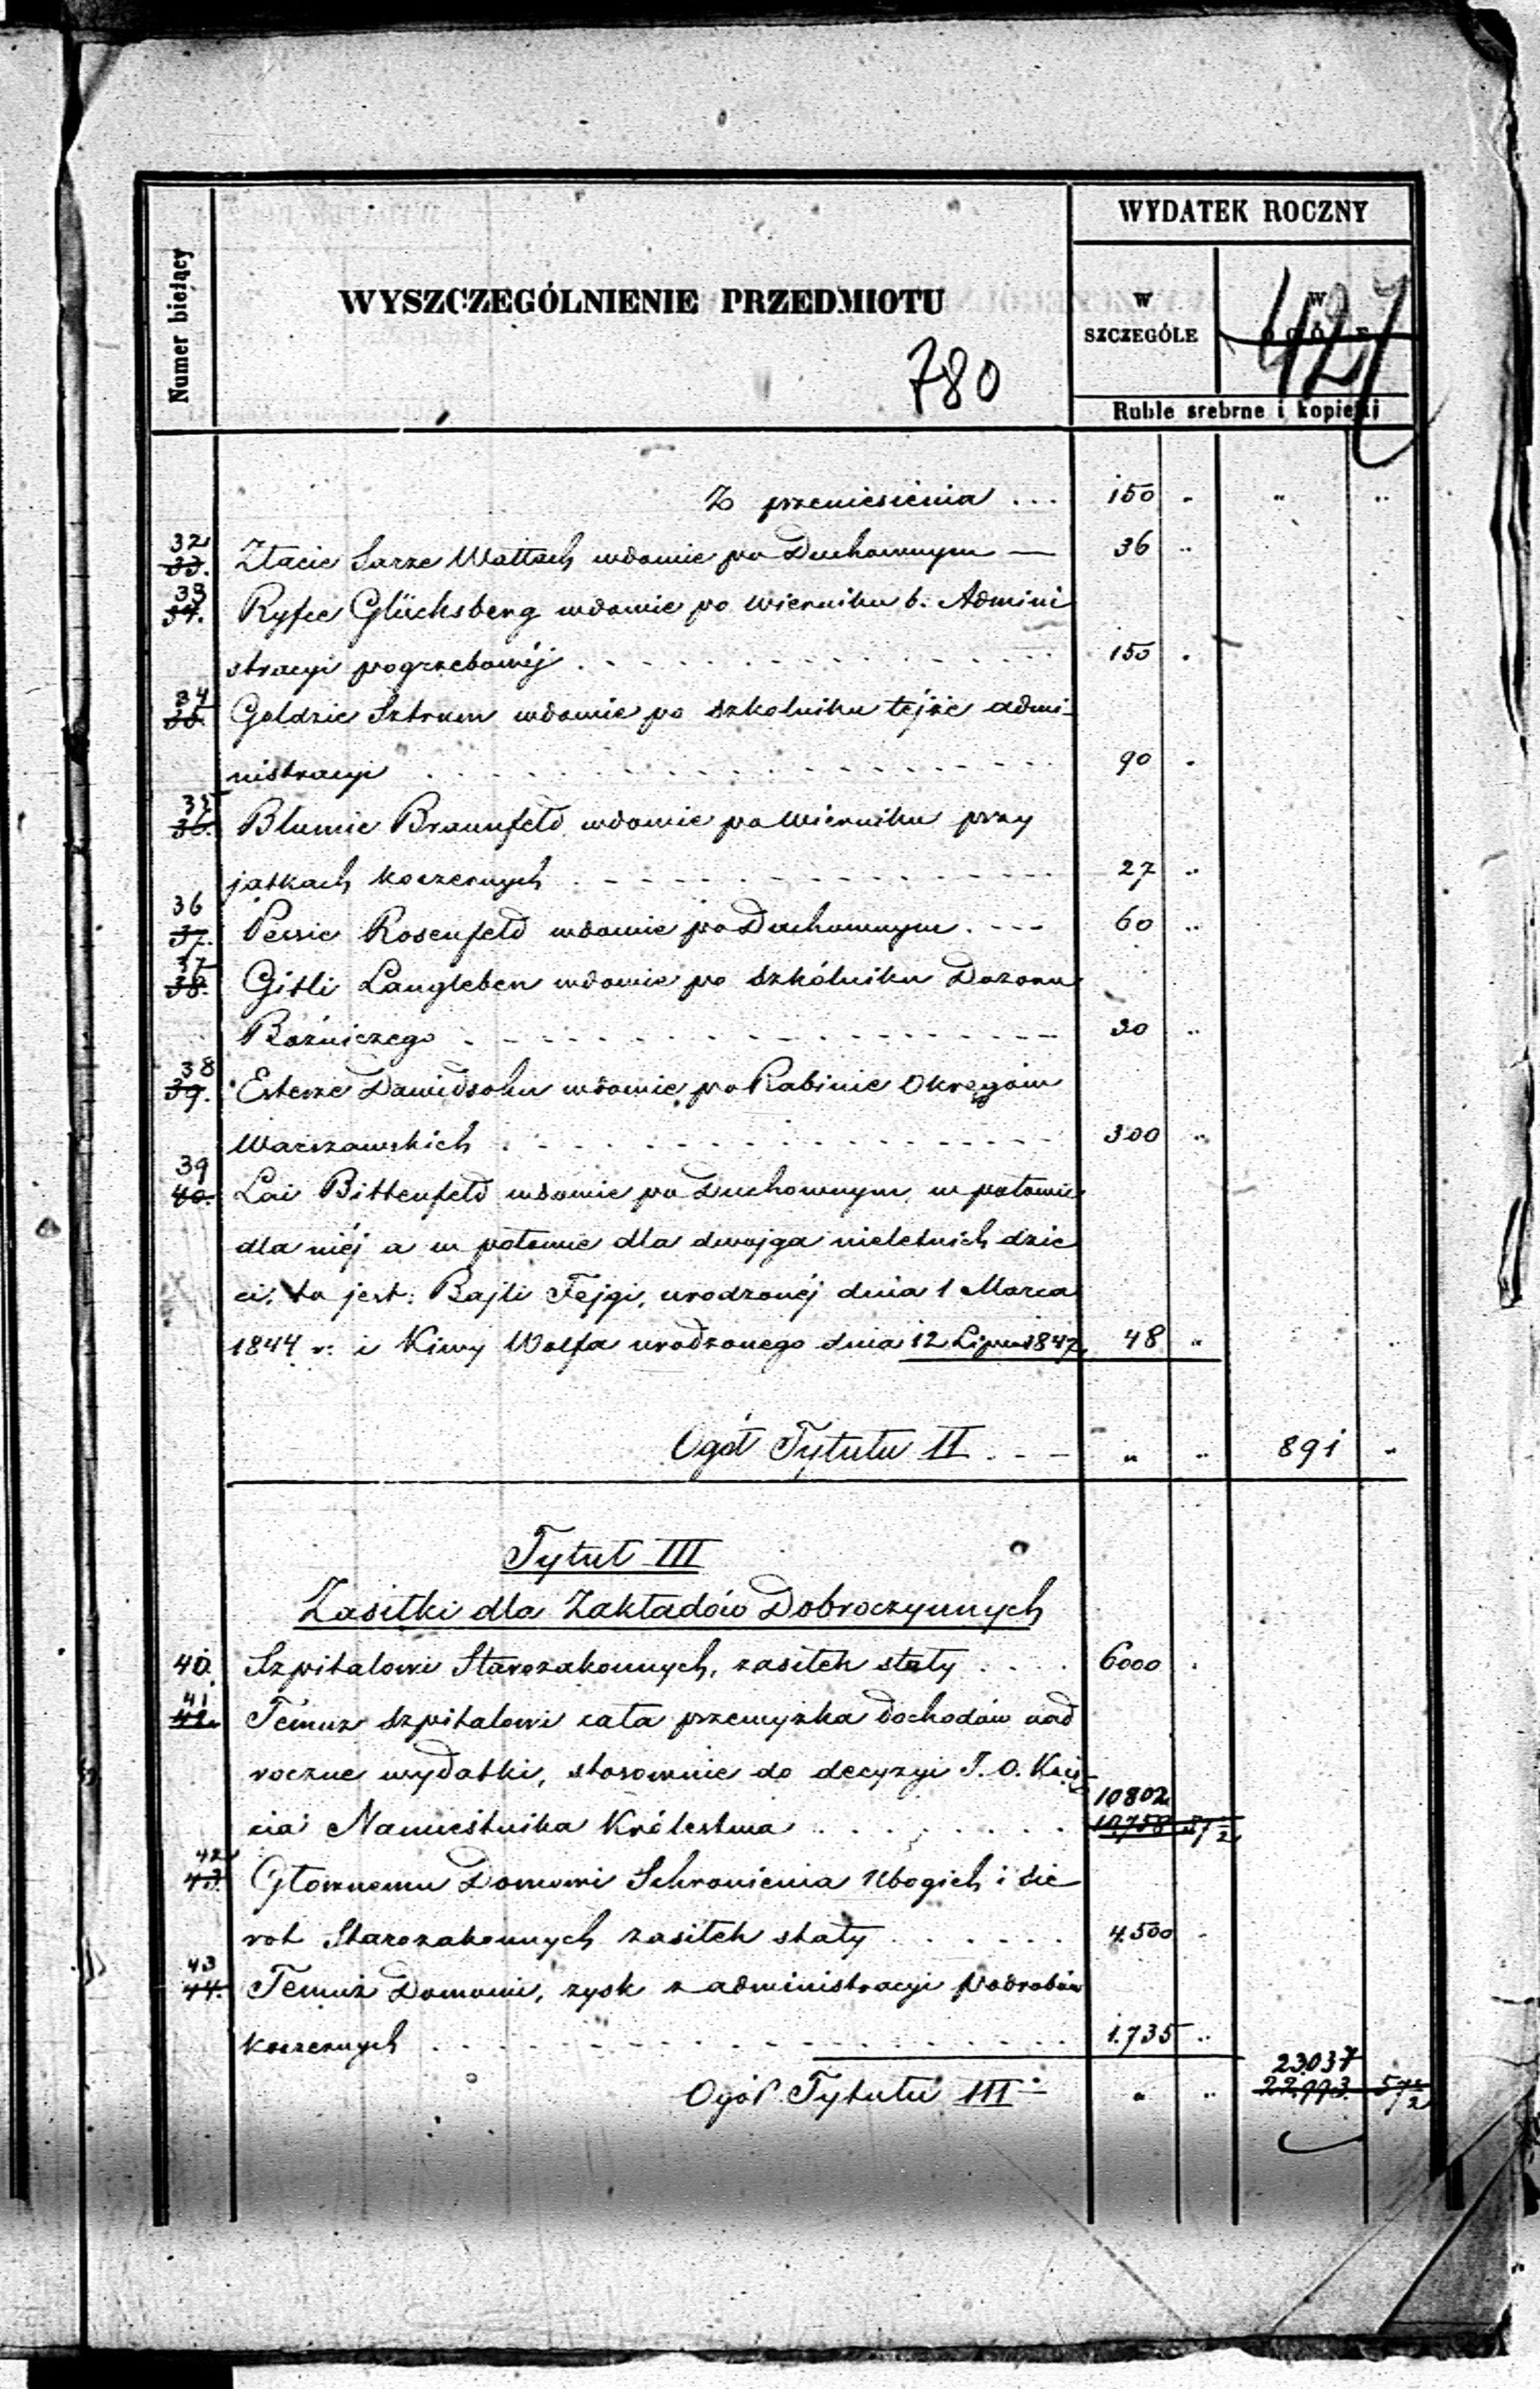 WYDATEK ROCZNY
Numer bieżący
WYSZCZEGÓLNIENIE PRZEDMIOTU
W SZCZEGÓLE
W OGÓLE
427
780
Ruble srebrne i kopiejki
Z przeniesienia ... 150 " " "
32 33. Złacie Sarze Wallach wdowie po Duchownym — 36 "
33 34. Ryfce Glücksberg wdowie po wierniku b. Admini
stracyi pogrzebowéj 150 "
34 35. Goldzie Sztrum wdowie po szkolniku téjże admi-
nistracyi 90 "
35 36. Blumie Braunfeld wdowie po Wierniku przy
jatkach koszernych 27 "
36 37. Pessie Rosenfeld wdowie po Duchownym 60 "
37 38. Gitli Langleben wdowie po Szkólniku Dozoru
Bożniczego 30 "
38 39. Esterze Dawidsohn wdowie po Rabinie Okręgów
Warszawskich 300 "
39 40. Lai Bittenfeld wdowie po Duchownym, w połowie
dla niéj a w połowie dla dwojga nieletnich dzie
ci, to jest: Bajli Fejgi, urodzonéj dnia 1 Marca
1844 r. i Kiwy Wolfa urodzonego dnia 12 Lipca 1847 48 "
Ogół Tytułu II " " 891 "
Tytuł III
Zasiłki dla Zakładów Dobroczynnych
40. Szpitalowi Starozakonnych, zasiłek stały 6000 "
41 42. Temuż szpitalowi cała przewyżka dochodów nad
roczne wydatki, stosownie do decyzyi J. O. Księ
cia Namiestnika Królestwa 10802 10,758 57½
42 43. Głównemu Domowi Schronienia Ubogich i Sie
rot Starozakonnych zasiłek stały 4.500 "
43 44. Temuż Domowi, zysk z administracyi podrobów
koszernych 1.735 "
Ogół Tytułu III " " 23.037 22.993 57½